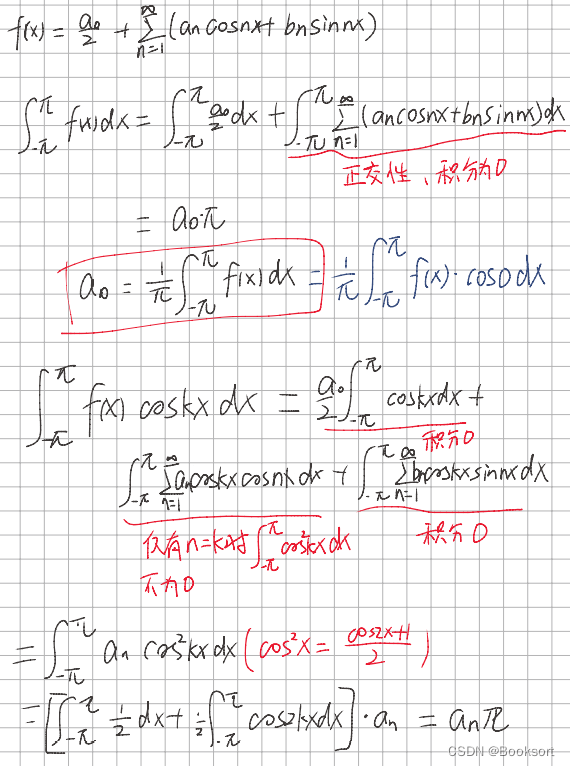 f(x) = a₀/2 + ∑_{n=1}^{∞} (an cosnx + bn sinnx)
∫_{-π}^{π} f(x)dx = ∫_{-π}^{π} a₀/2 dx + ∫_{-π}^{π} ∑_{n=1}^{∞} (an cosnx + bn sinnx)dx
正交性、积分为0
= a₀·π
a₀ = 1/π ∫_{-π}^{π} f(x)dx = 1/π ∫_{-π}^{π} f(x)·cos0dx
∫_{-π}^{π} f(x) coskx dx = a₀/2 ∫_{-π}^{π} coskxdx +
积分0
∫_{-π}^{π} ∑_{n=1}^{∞} an coskx cosnx dx + ∫_{-π}^{π} ∑_{n=1}^{∞} bn coskx sinnx dx
仅有n=k时 ∫_{-π}^{π} cos²kx dx 积分0
不为0
= ∫_{-π}^{π} an cos²kx dx (cos²x = (cos2x+1)/2)
= [∫_{-π}^{π} 1/2 dx + 1/2 ∫_{-π}^{π} cos2kxdx]·an = anπ
CSDN @Booksort